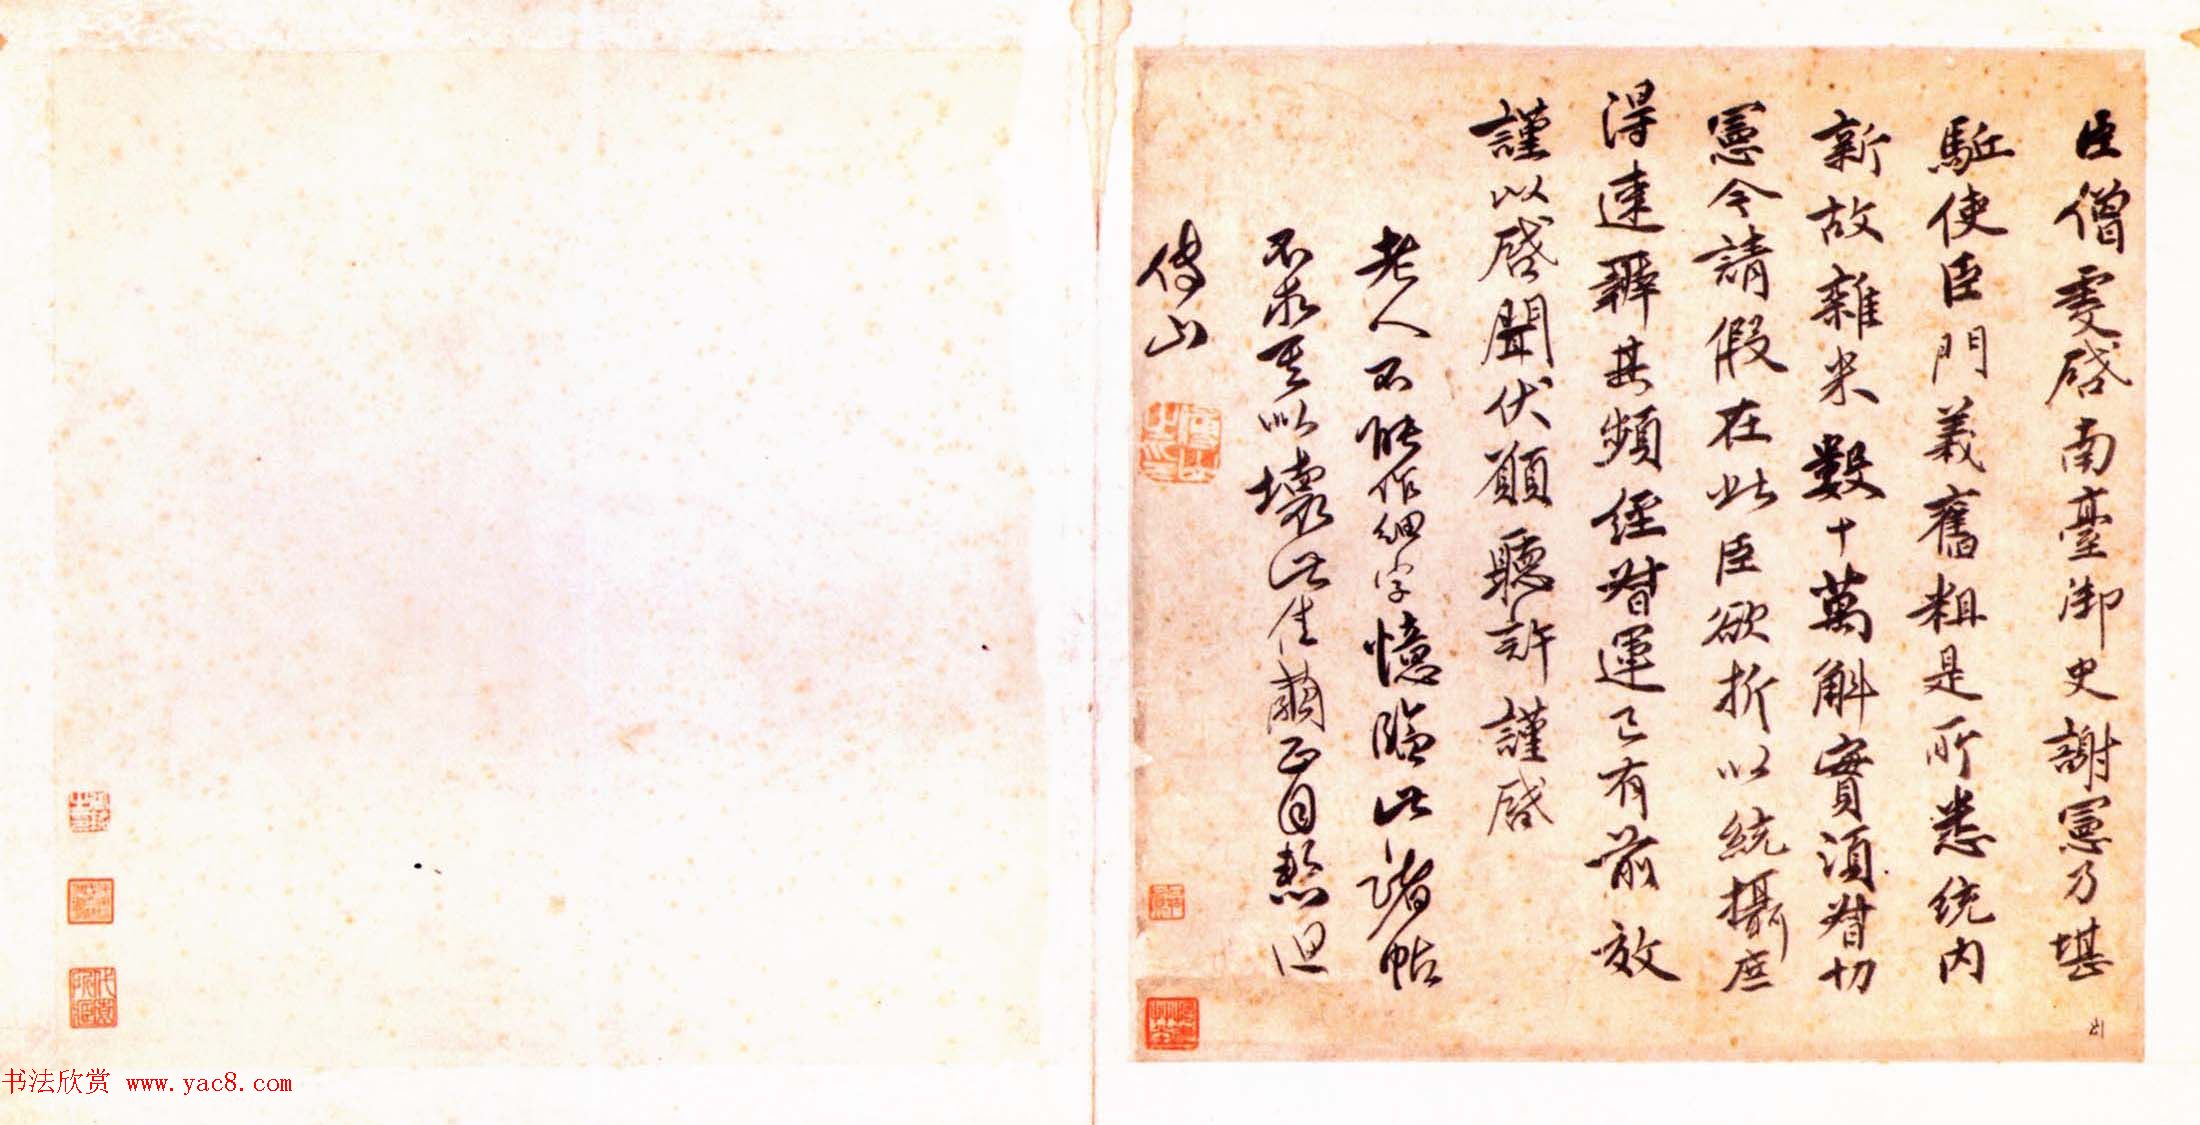 臣僧虔启南臺御史謝憲乃堪
駈使臣門義舊粗是所悉统内
新故雜米數十萬斛實須督切
憲令請假在此臣欲折以統攝庶
得速辦其頻經督運已有前效
謹以启聞伏願聽許謹启
老人不能作細字憶臨此諸帖
不求其似壞此佳繭正自慙
傅山
书法欣赏 www.yac8.com